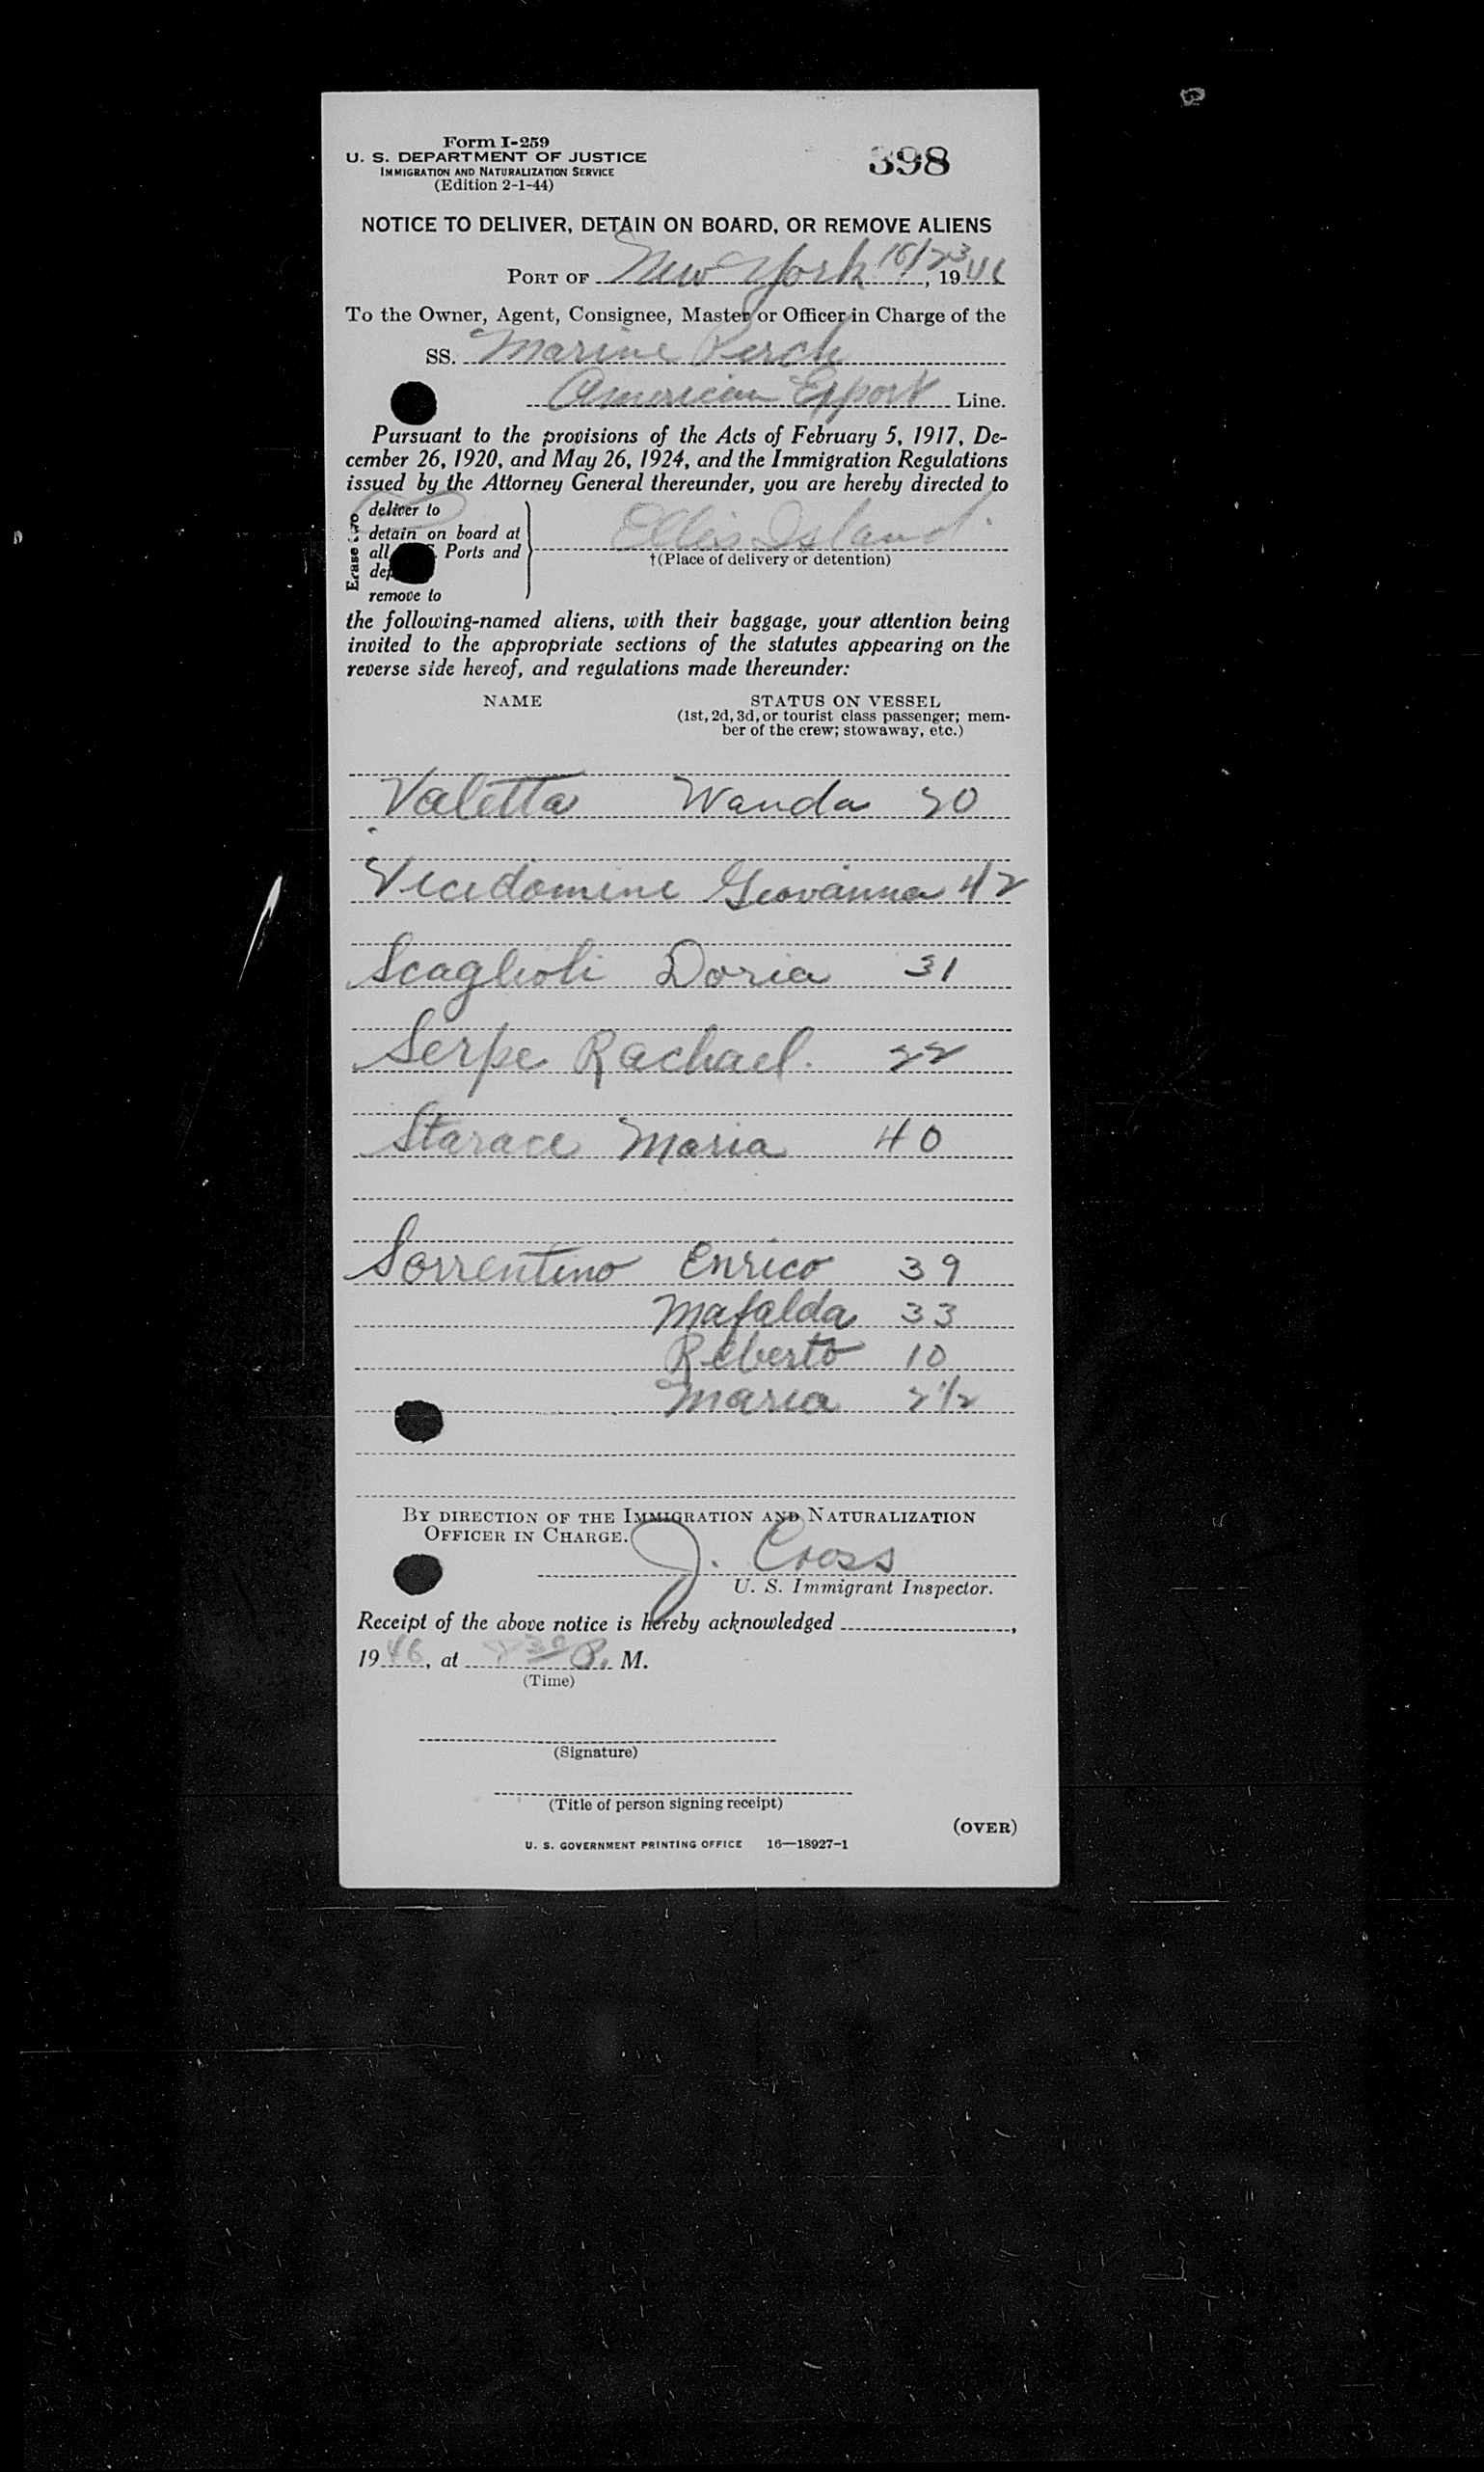 Form I-259
U. S. DEPARTMENT OF JUSTICE
IMMIGRATION AND NATURALIZATION SERVICE
(Edition 2-1-44)
398
NOTICE TO DELIVER, DETAIN ON BOARD, OR REMOVE ALIENS
PORT OF New York 10/23, 1946
To the Owner, Agent, Consignee, Master or Officer in Charge of the
SS. Marine Perch
American Export Line.
Pursuant to the provisions of the Acts of February 5, 1917, De-
cember 26, 1920, and May 26, 1924, and the Immigration Regulations
issued by the Attorney General thereunder, you are hereby directed to
Erase two
deliver to
detain on board at
all Ports and
remove to
Ellis Island
†(Place of delivery or detention)
the following-named aliens, with their baggage, your attention being
invited to the appropriate sections of the statutes appearing on the
reverse side hereof, and regulations made thereunder:
NAME STATUS ON VESSEL
(1st, 2d, 3d, or tourist class passenger; mem-
ber of the crew; stowaway, etc.)
Valetta Wanda 20
Vicidomini Giovanna 42
Scaglioli Doria 31
Serpe Rachael. 22
Starace Maria 40
Sorrentino Enrico 39
Mafalda 33
Roberto 10
Maria 2 1/2
BY DIRECTION OF THE IMMIGRATION AND NATURALIZATION
OFFICER IN CHARGE.
J. Cross
U. S. Immigrant Inspector.
Receipt of the above notice is hereby acknowledged ,
1946, at P. M.
(Time)
(Signature)
(Title of person signing receipt)
(OVER)
U. S. GOVERNMENT PRINTING OFFICE 16—18927-1